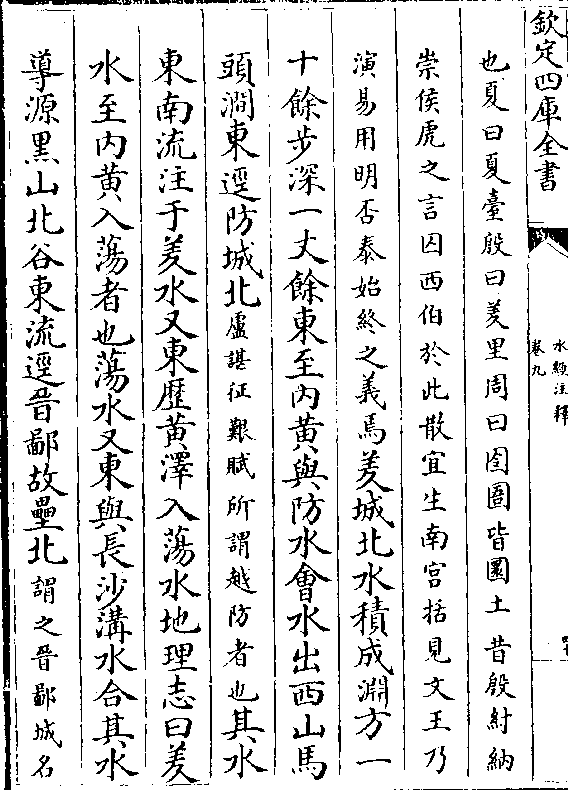 欽定四庫全書
水經注釋
卷九
也夏曰夏臺殷曰羑里周曰囹圄皆圜土昔殷紂納
崇侯虎之言囚西伯於此散宜生南宫括見文王乃
演易用明否泰始終之義焉羑城北水積成淵方一
十餘步深一丈餘東至内黄與防水會水出西山馬
頭澗東逕防城北盧諶征艱賦所謂越防者也其水
東南流注于羑水又東歷黄澤入蕩水地理志曰羑
水至内黄入蕩者也蕩水又東與長沙溝水合其水
導源黑山北谷東流逕晉鄙故壘北謂之晉鄙城名